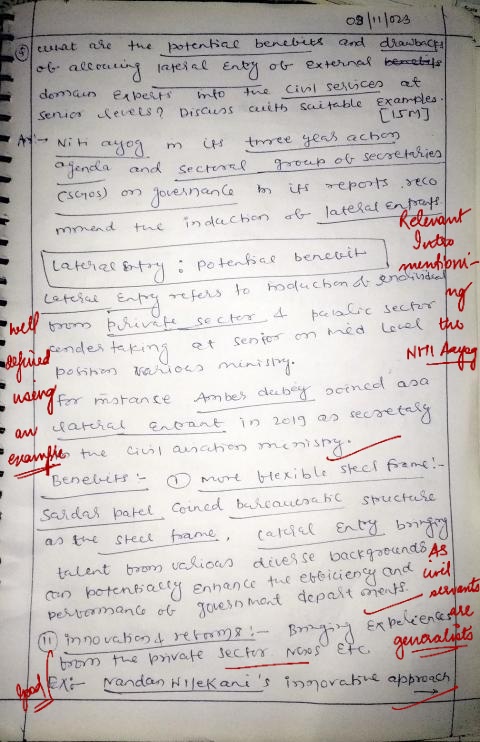 09/11/023
5) What are the potential benefits and drawbacks
of allowing lateral entry of external benefits
domain experts into the civil services at
senior levels? Discuss with suitable examples.
[15M]
Ans:- Niti ayog in its three year action
agenda and sectoral group of secretaries
(SGOS) on governance in its reports reco
mmend the induction of lateral entrants
Relevant
Intro
mentioni-
ng
the
NITI Aayog
Lateral Entry : potential benefit
Lateral Entry refers to induction of individual
from private sector & public sector
undertaking at senior on mid level
position various ministry.
well
defined
using
an
example
for instance Amber dubey joined as a
lateral entrant in 2019 as secretary
in the civil aviation ministry.
Benefits:- (I) more flexible steel frame:-
Sardar patel coined bureaucratic structure
as the steel frame, lateral entry bringing
talent from various diverse backgrounds
can potentially enhance the efficiency and
performance of government departments.
As
civil
servants
are
generalists
(II) innovation & reforms:- Bringing experiences
from the private sector NGOs Etc
Good
EX:- Nandan Nilekani's innovative approach